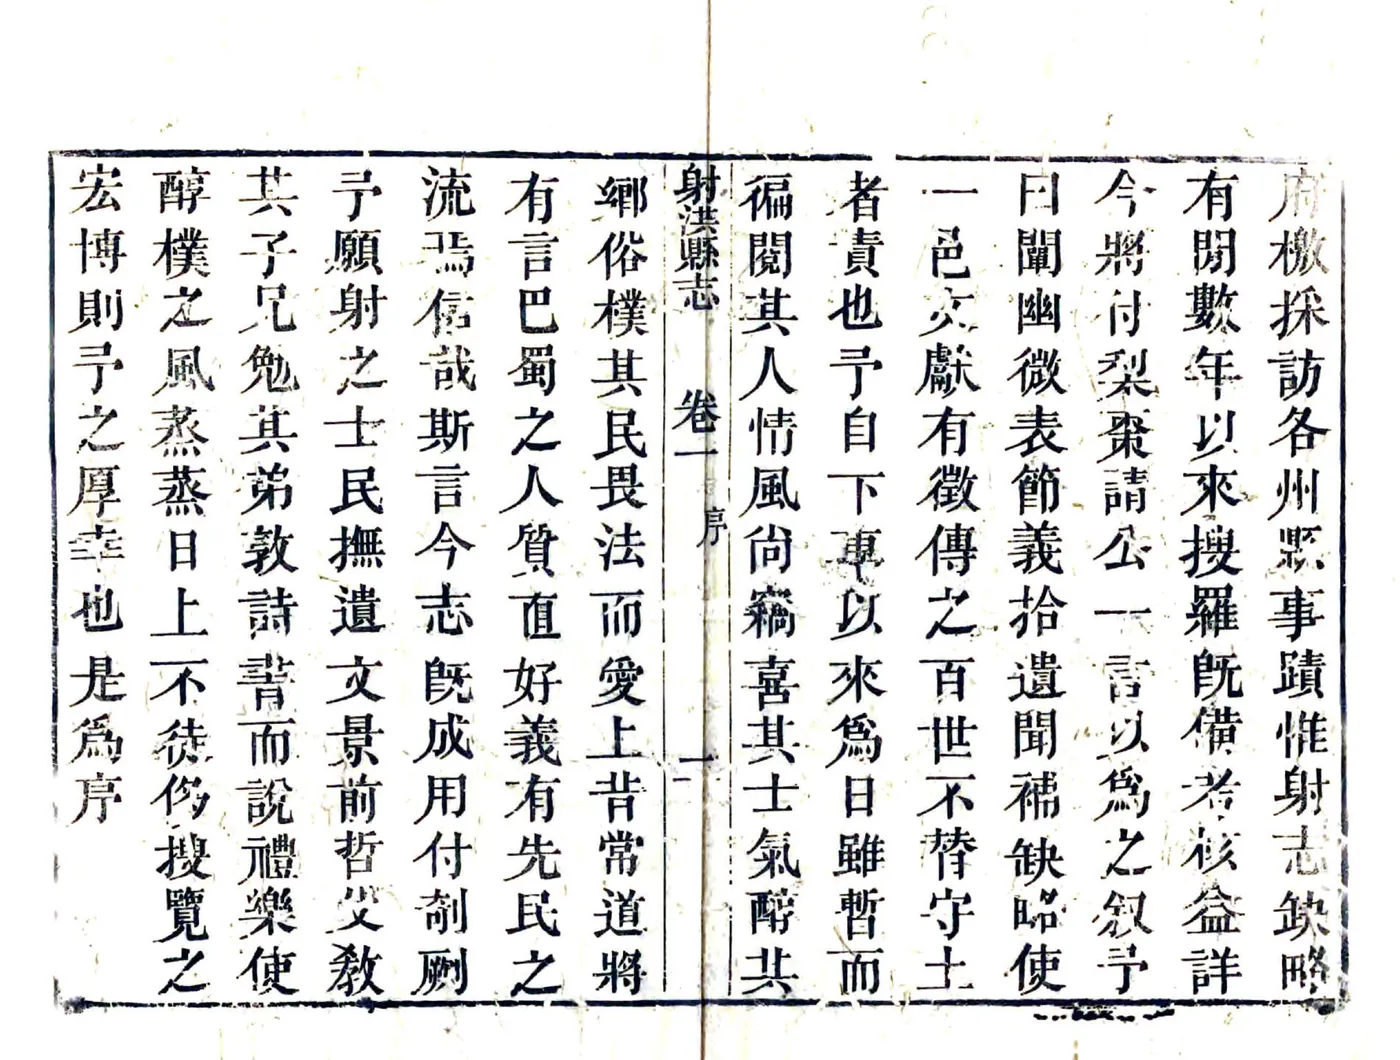 府檄採訪各州縣事蹟惟射志缺略
有閒數年以來搜羅既備考核益詳
今將付梨棗請公一言以為之叙予
曰闡幽微表節義拾遺聞補缺略使
一邑文獻有徵傳之百世不替守土
者責也予自下車以來為日雖暫而
徧閱其人情風尚竊喜其士氣醇其
射洪縣志 卷一 序 二
鄉俗樸其民畏法而愛上昔常道將
有言巴蜀之人質直好義有先民之
流焉信哉斯言今志既成用付剞劂
予願射之士民撫遺文景前哲父教
其子兄勉其弟敦詩書而說禮樂使
醇樸之風蒸蒸日上不徒侈搜覽之
宏博則予之厚幸也是為序